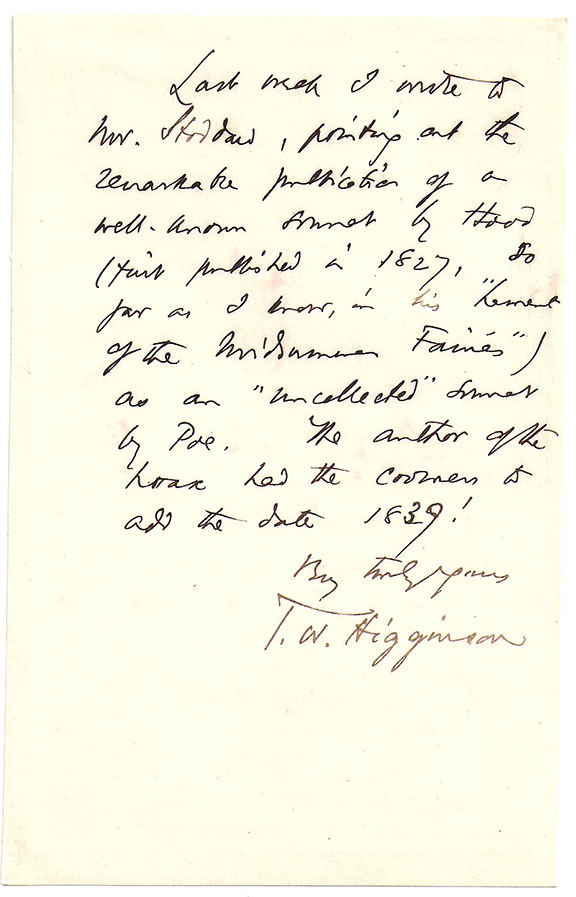 Last week I wrote to
Mr. Stoddard, pointing out the
remarkable publication of a
well-known sonnet by Hood
(first published in 1827, so
far as I know, in his "
of the Midsummer Fairies")
as an "uncollected" sonnet
by Poe. The author of the
hoax had the coolness to
add the date 1839!
Very truly yours
T. W. Higginson